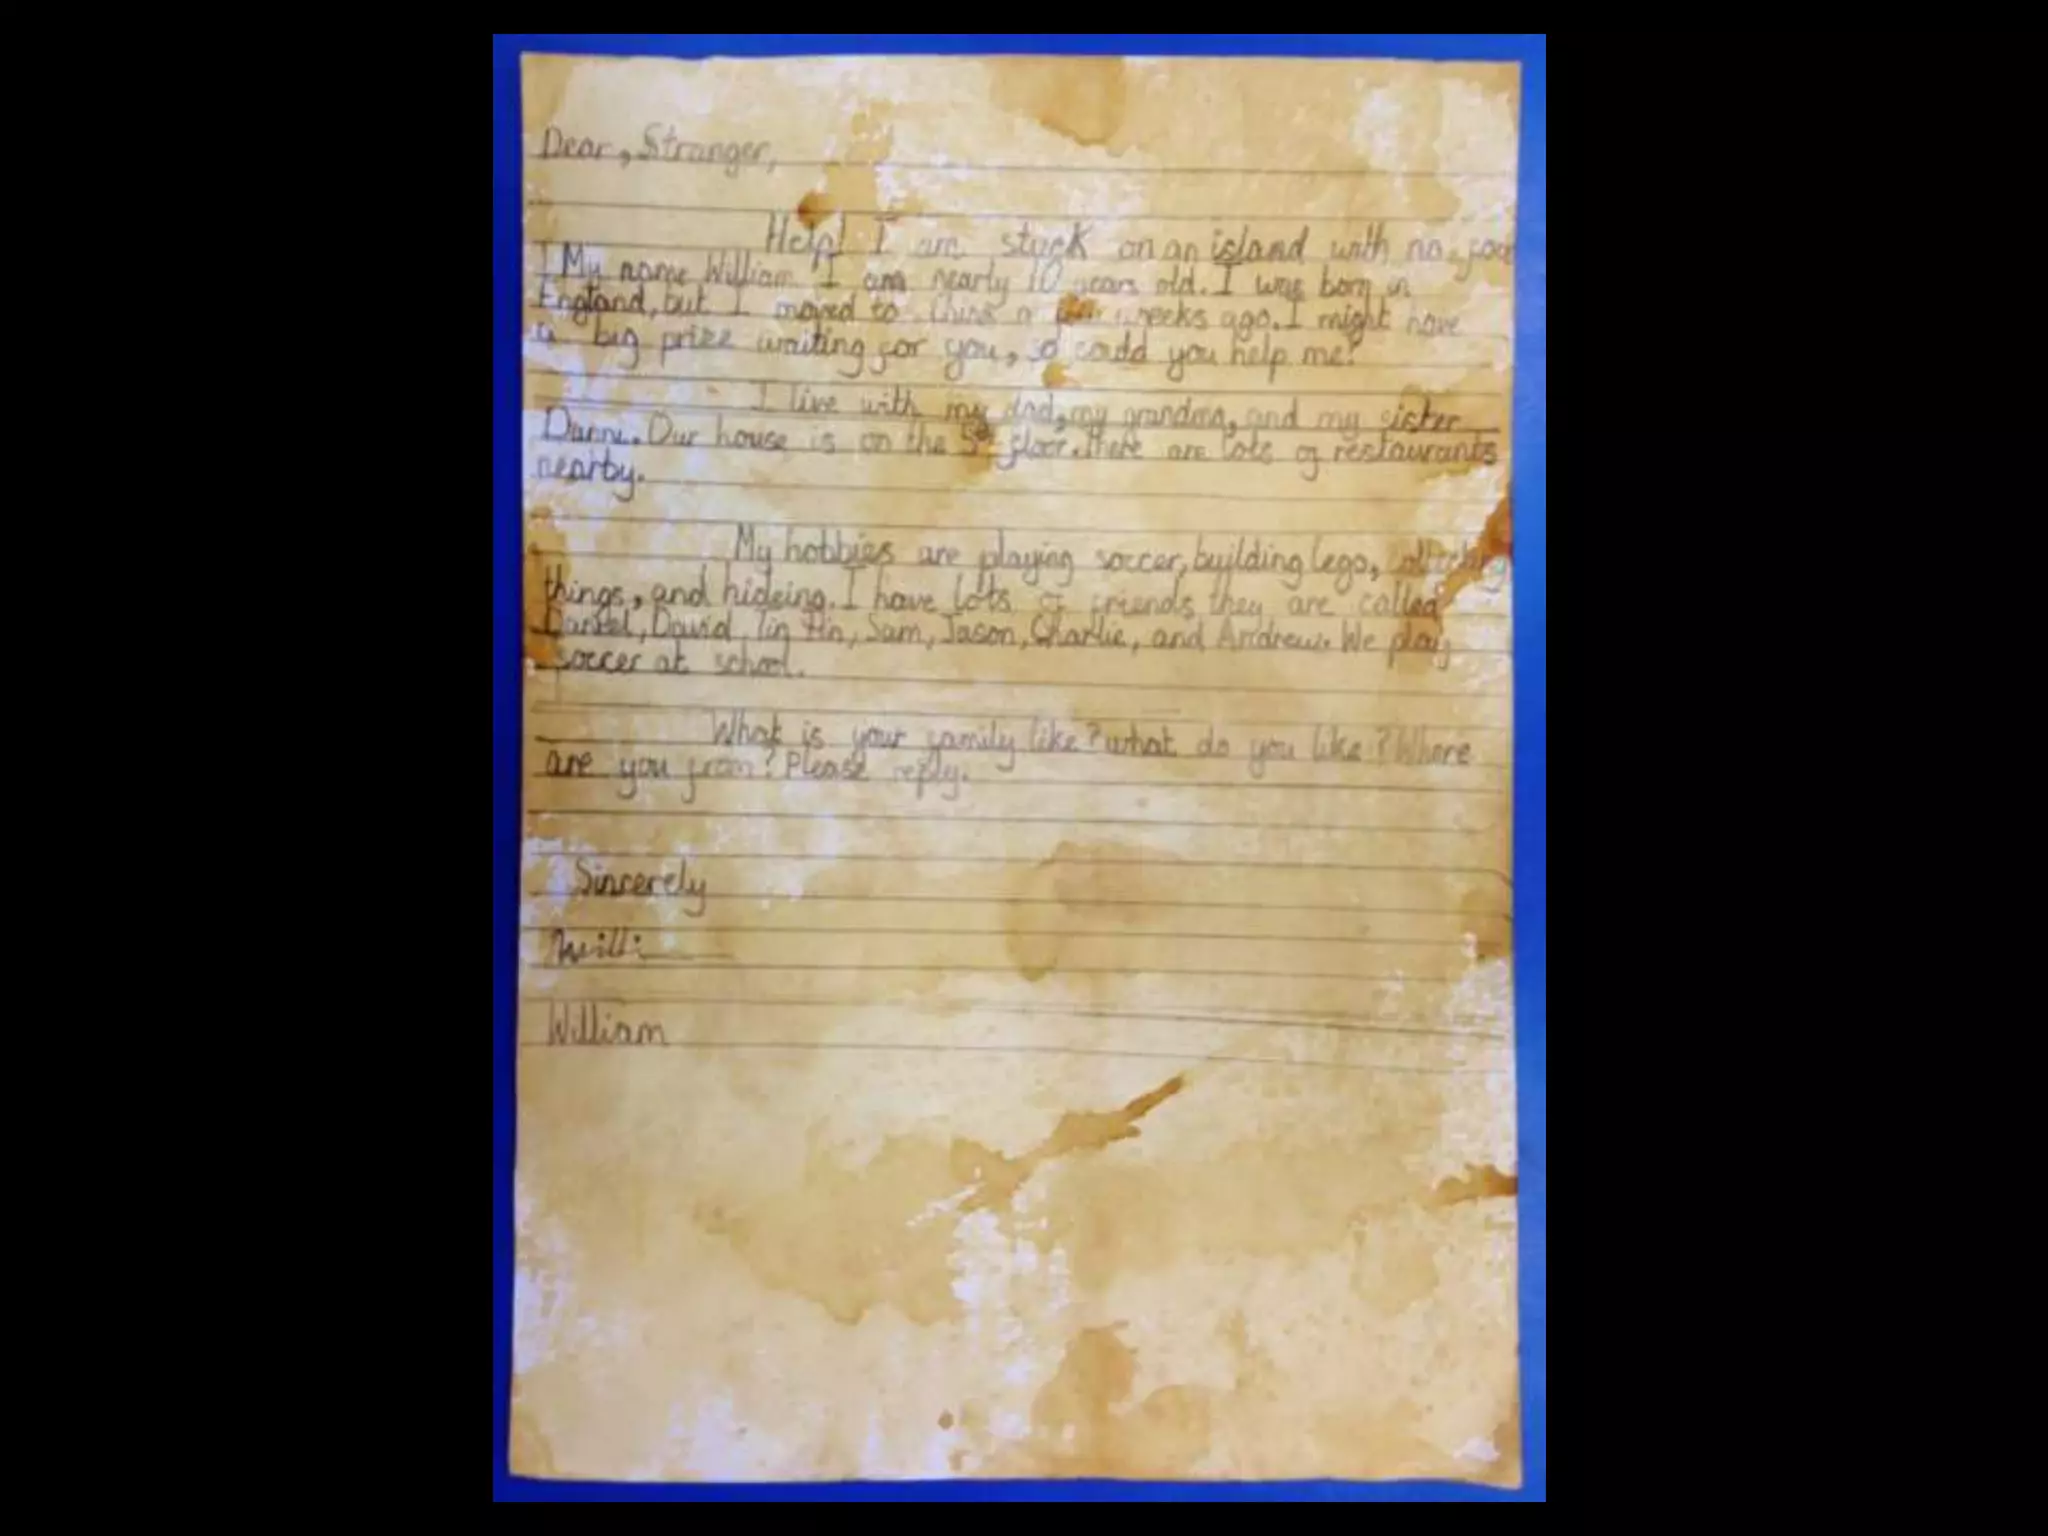 Dear, Stranger,
Help! I am stuck on an island with no
! My name William I am nearly 10 years old. I was born in
England, but I moved to China a few weeks ago. I might have
a big prize waiting for you, so could you help me?
I live with my dad, my grandma, and my sister
Danni. Our house is on the 5th floor. there are lots of restaurants
nearby.
My hobbies are playing soccer, building lego,
things, and hideing. I have lots of friends they are called
Daniel, David, Tin Hin, Sam, Jason, Charlie, and Andrew. We play
soccer at school.
What is your family like? what do you like? Where
are you from? Please reply.
Sincerely
Willi
William